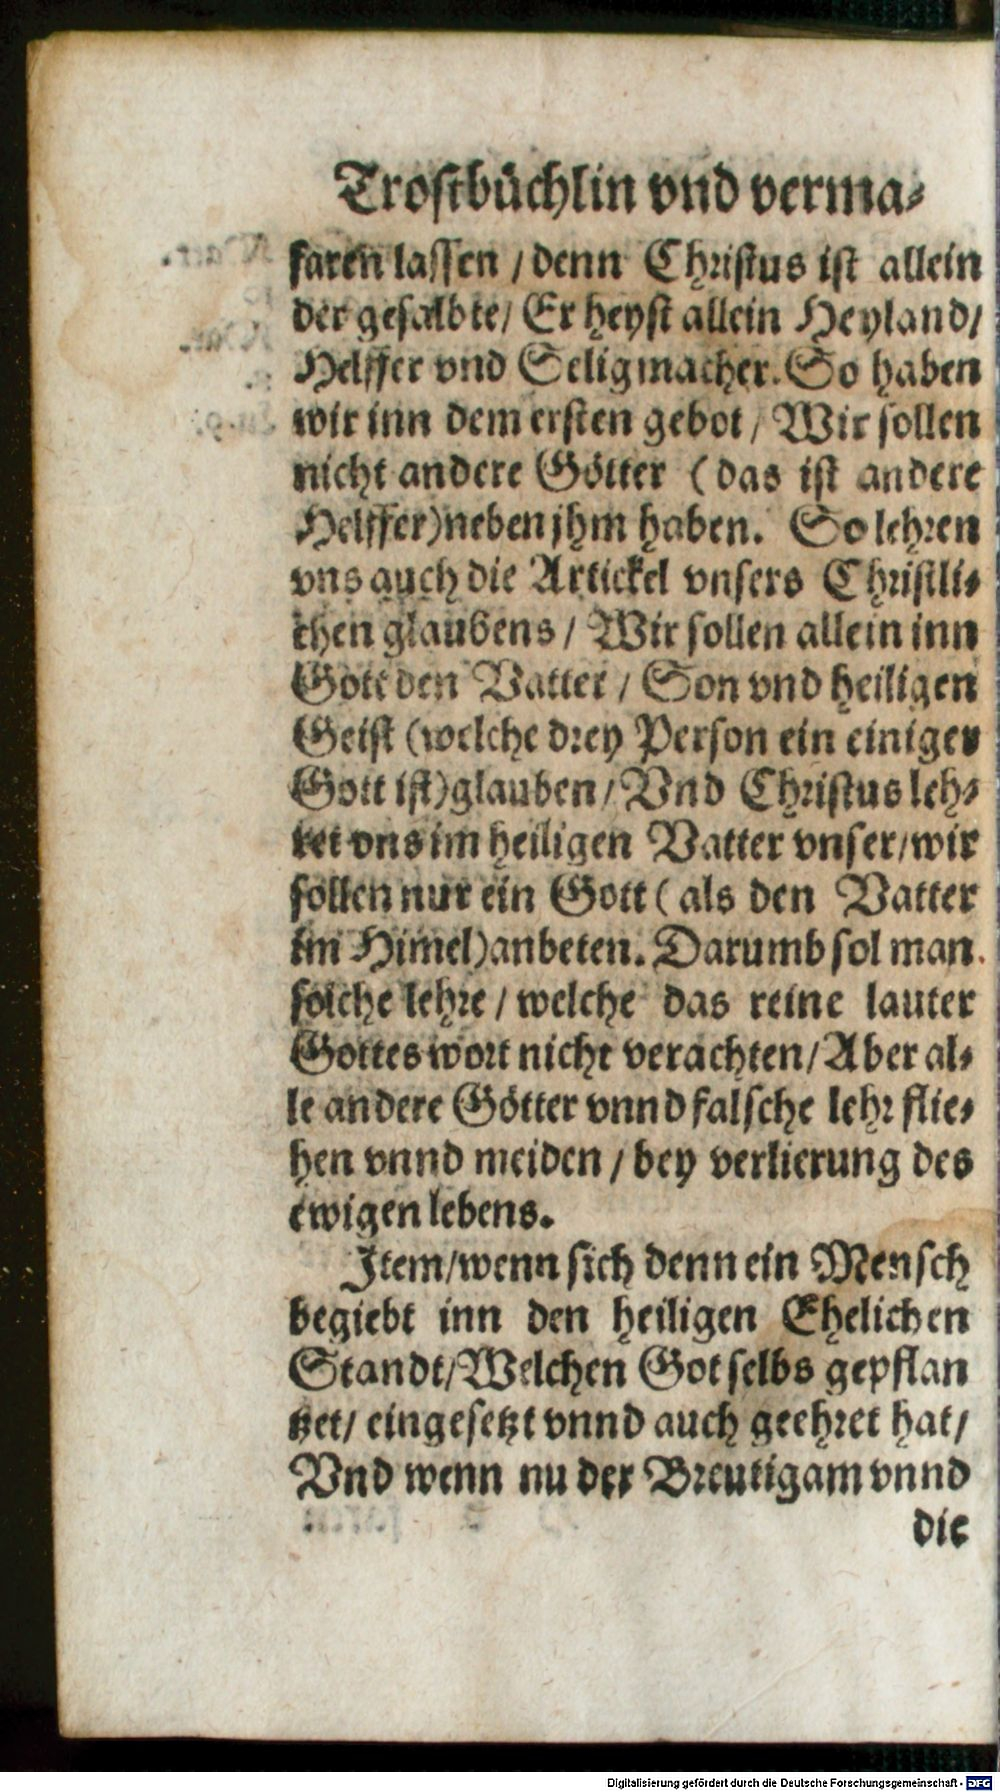 Trostbüchlin vnd verma⸗
faren lassen / denn Christus ist allein
der gesalbte / Er heyst allein Heyland /
Helffer vnd Seligmacher. So haben
wir inn dem ersten gebot / Wir sollen
nicht andere Götter (das ist andere
Helffer) neben jhm haben. So lehren
vns auch die Artickel vnsers Christli⸗
chen glaubens / Wir sollen allein inn
Gott den Vatter / Son vnd heiligen
Geist (welche drey Person ein einiger
Gott ist) glauben / Vnd Christus leh⸗
ret vns im heiligen Vatter vnser / wir
sollen nur ein Gott (als den Vatter
im Himel) anbeten. Darumb sol man
solche lehre / welche das reine lauter
Gottes wort nicht verachten / Aber al⸗
le andere Götter vnnd falsche lehr flie⸗
hen vnnd meiden / bey verlierung des
ewigen lebens.
Item / wenn sich denn ein Mensch
begiebt inn den heiligen Ehelichen
Standt / Welchen Got selbs gepflan
tzet / eingesetzt vnnd auch geehret hat /
Vnd wenn nu der Breutigam vnnd
die
Digitalisierung gefördert durch die Deutsche Forschungsgemeinschaft - DFG